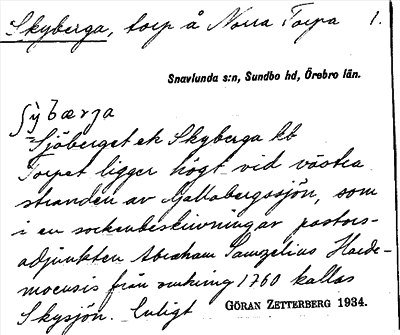 Skyberga, torp å Norra Torpa 1.
Snavlunda s:n, Sundbo hd, Örebro län.
ʃy̆bærja
=Sjöberget ek Skyberga kb
Torpet ligger högt vid västra
stranden av Gallabergssjön, som
i en sockenbeskrivning av pastors-
adjunkten Abraham Samzelius Haede-
moensis från omkring 1760 kallas
Skysjön. Enligt GÖRAN ZETTERBERG 1934.